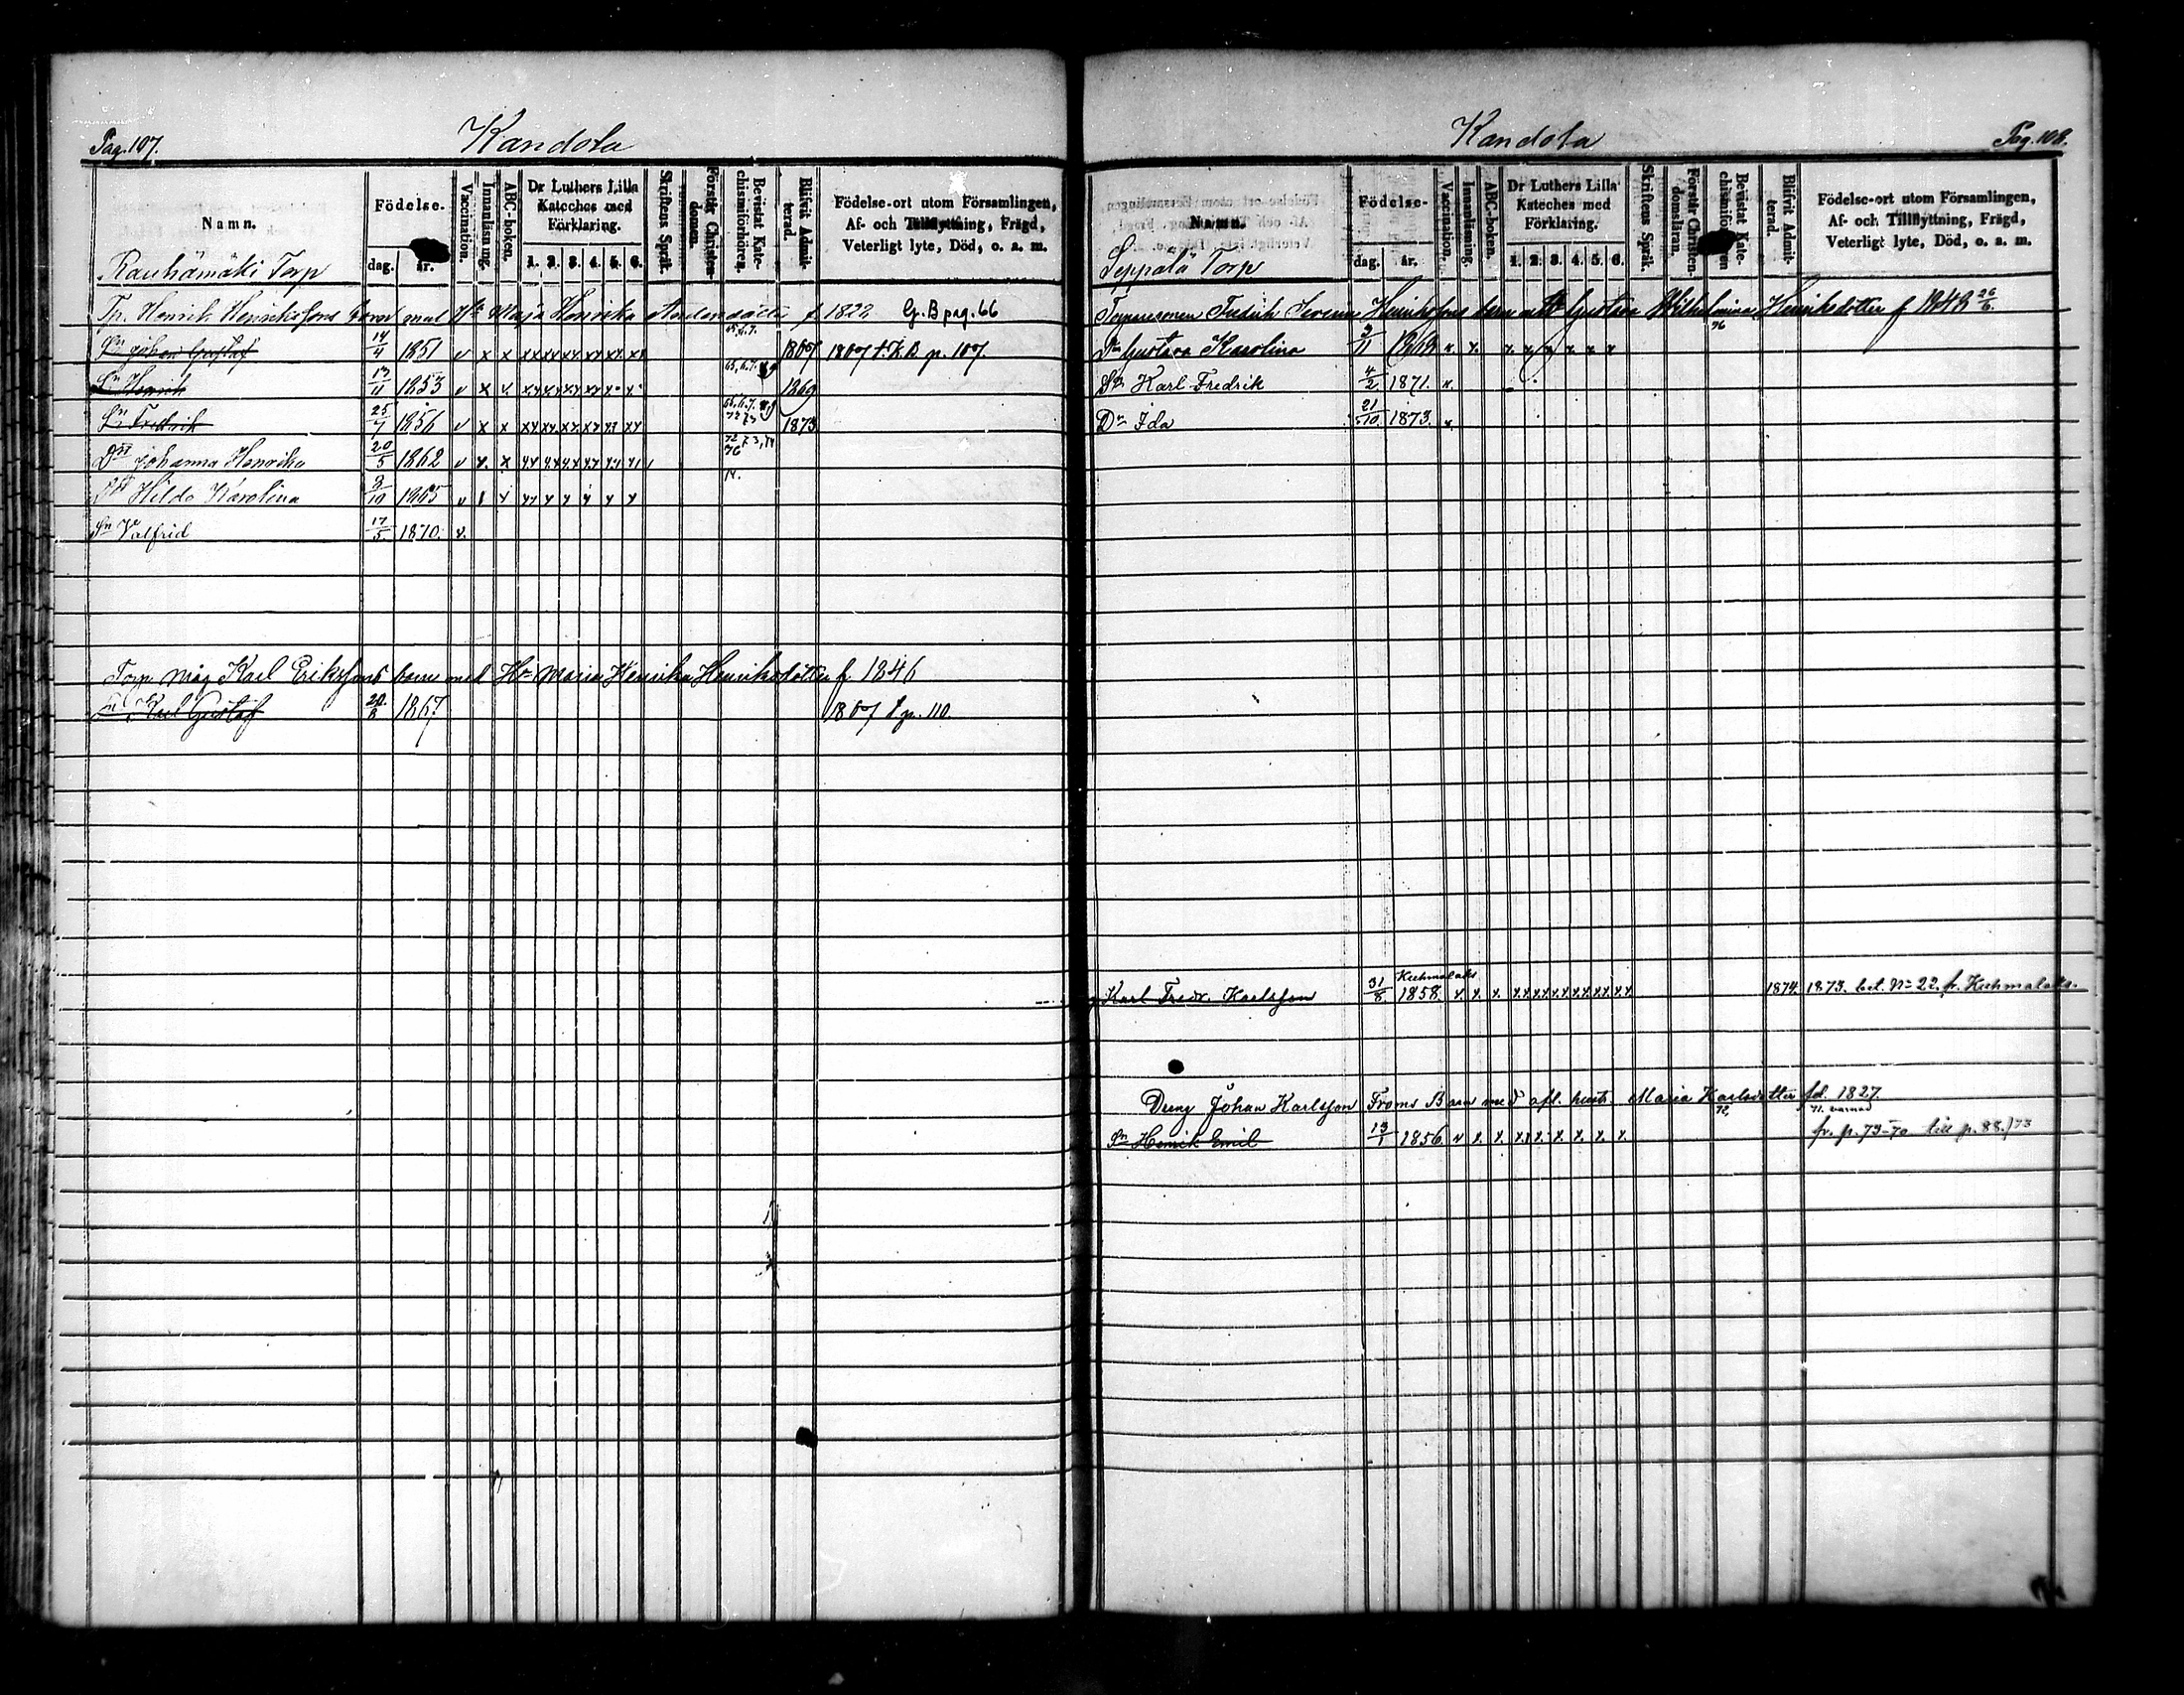 Pag. 107.
Kandola
Namn.
Födelse.
dag.
år.
Vaccination.
Innanläsning.
ABC-boken.
Dr Luthers Lilla Kateches med Förklaring.
1. 2. 3. 4. 5. 6.
Skriftens Språk.
Förstår Christendomen.
Bevistat Katechismiförhören.
Blifvit Admitterad.
Födelse-ort utom Församlingen,
Af- och Tillflyttning, Frägd,
Veterligt lyte, Död, o. a. m.
Rauhämäki Torp
Tp. Henrik Henrikssons barn med Hu Maja Henrika f 1822 G.B pag. 66
Sn Johan Gustaf 14/4 1851 v x x xx xx xx xx xx xx 65.6.7. 1867 1867 f. K.B p. 107.
Sn Henrik 13/11 1853 v x v. 65.6.7. 1869
Sn Fredrik 25/7 1856 v x x xx xx xx xx xx xx 72 73 1873
Dr Johanna Henrika 20/5 1862 v x. x 72 73,74 76
Dr Hilda Karolina 3/10 1865 v 74.
Sn Valfrid 17/5 1870. v.
Torp. Måg Karl Erikssons barn med Hu Maria Henrika Henriksdotter f. 1846
Sn Karl Gustaf 20./8 1867 1867 f p. 110.
Kandola
Pag. 108.
Namn.
Födelse-
dag.
år.
Vaccination.
Innanläsning.
ABC-boken.
Dr Luthers Lilla Kateches med Förklaring.
1. 2. 3. 4. 5. 6.
Skriftens Språk.
Förstår Christendomsläran.
Bevistat Katechismiförhören
Blifvit Admitterad.
Födelse-ort utom Församlingen,
Af- och Tillflyttning, Frägd,
Veterligt lyte, Död, o. a. m.
Seppälä Torp
Torparesonen Fredrik Severin Henrikssons barn med Gustava Wilhelmina Henriksdotter f 1848 26/6.
Dr Gustava Karolina 3/11 1868 x. x. x. x. x. x. x. x 76
Sn Karl Fredrik 4/2 1871. x.
Dr Ida 21/10 1873. x.
Karl Fredr. Karlsson 31/8 1858 Kuhmalaks x. x. x. xx xx xx xx xx xx 1874. 1873. bet. No 22. fr. Kuhmalaks.
Dreng Johan Karlsson Froms Barn med afl. hust. Maria Karlsdotter fd. 1827.
Sn Henrik Emil 13/1 1856 v x. x. x.x x. x. x. x. x. 72, fr. p. 73-70 till p. 88./73